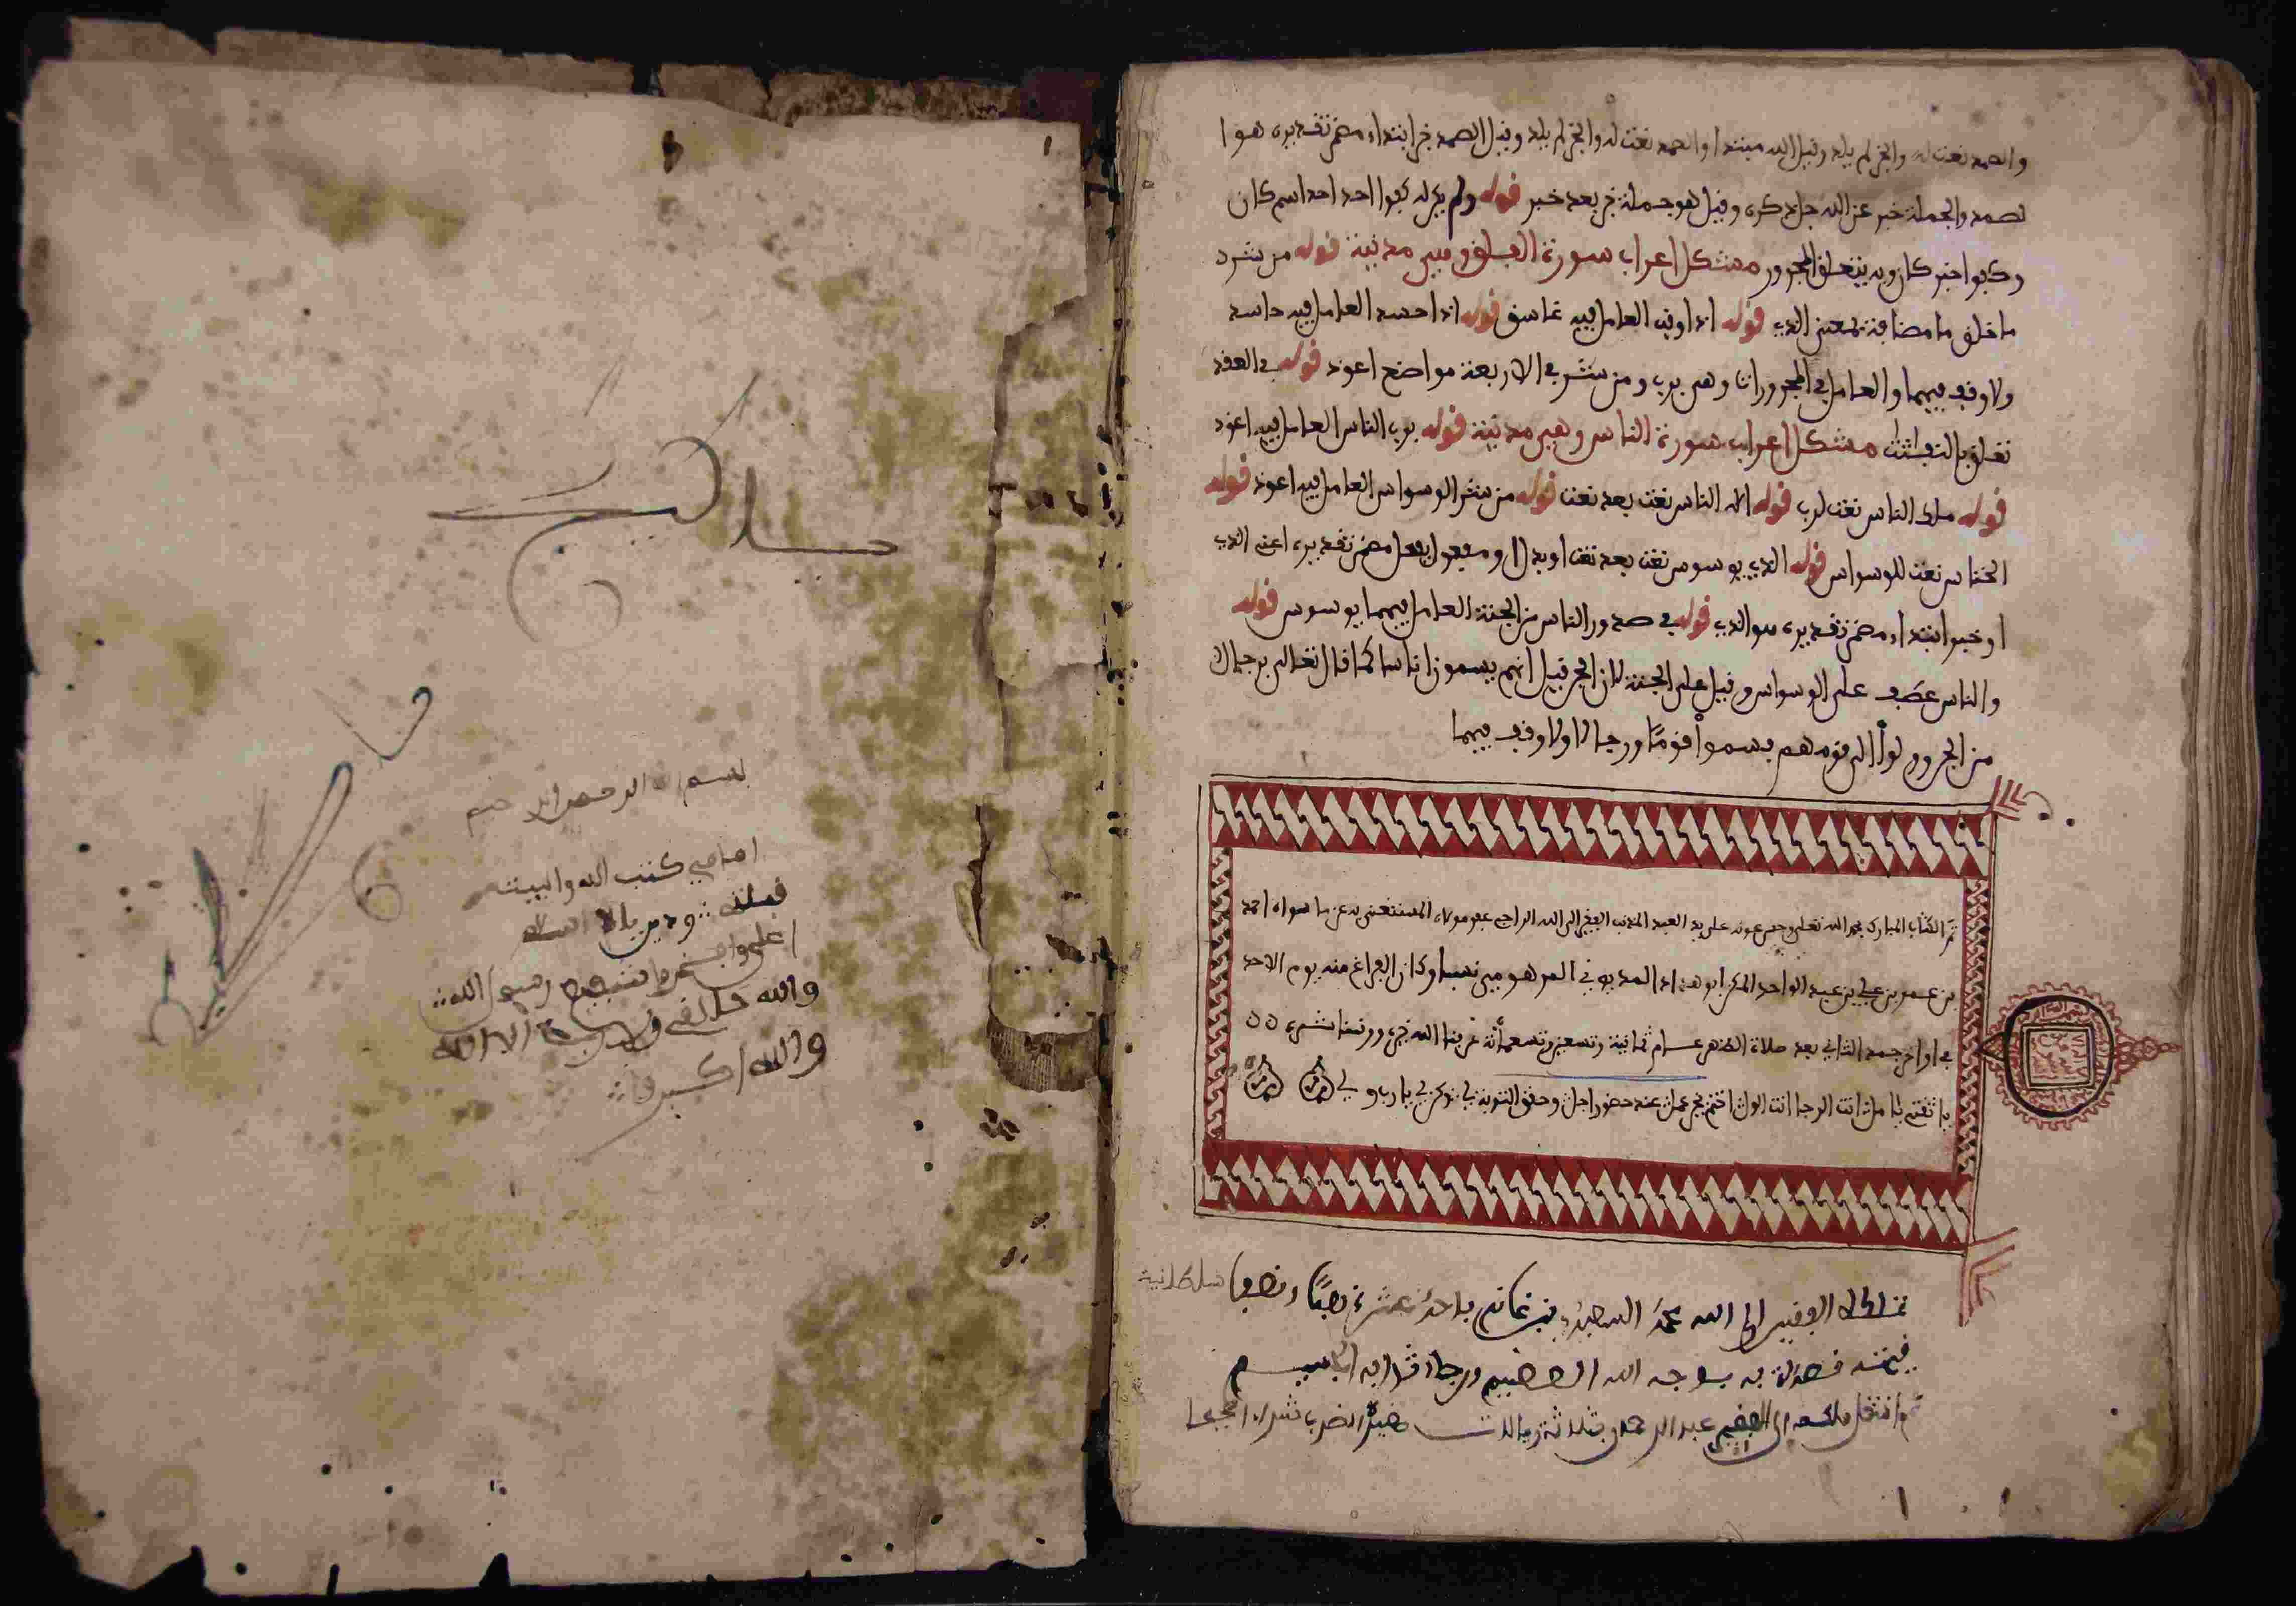 والصمد نعت له والخبر لم يلد وقيل الله مبتدا والصمد نعت له والخبر لم يلد وقيل الصمد خبر ابتداء مضمر تقديره هوا
لصمد والجملة خبر عن الله جل ذكره وقيل هو جملة خبر بعد خبر قوله ولم يكن له كفوا احد احد اسم كان
وكفوا خبر كان وبه يتعلق المجرور مشكل اعراب سورة الفلق وهي مدنية قوله من شر
ما خلق ما مضافة بمعنى الذي قوله اذا وقب العامل فيه غاسق قوله اذا حسد العامل فيه حاسد
ولا وقف فيهما والعامل في المجرورات وهي برب ومن شر في الاربعة مواضع اعوذ قوله في العقد
تعلق بالنفثت مشكل اعراب سورة الناس وهي مدنية قوله برب الناس العامل فيه اعوذ
قوله ملك الناس نعت لرب قوله اله الناس نعت بعد نعت قوله من شر الوسواس العامل فيه اعوذ قوله
الخناس نعت للوسواس قوله الذي يوسوس نعت بعد نعت او بدل او مفعول بفعل مضمر تقديره اعني الذي
او خبر ابتداء مضمر تقديره هو الذي قوله في صدور الناس من الجنة العامل فيهما يوسوس قوله
والناس عطف على الوسواس وقيل على الجنة لان الجن قيل انهم يسمون اناسا كما قال تعالى برجال
من الجن وولوا الى قومهم فسموا قوما ورجالا ولا وقف فيهما
تم الكتاب المبارك بحمد الله تعلى وحسن عونه على يد العبد المذنب الفقير الى الله الراجي عفو مولاه المستغني به عن ما سواه احمد
بن عمر بن علي بن عبد الواحد المكنى ابو هداد المديوني المرهومي نسبا وكان الفراغ منه يوم الاحد
في اواخر جمد الثاني بعد صلاة الظهر عام ثمانية وتسعين وتسعمائة عرفنا الله خيره ووقنا شره
يا ثقتي يا املي انت الرجا انت الولي اختم بخير عملي عند حضور اجلي وحقق التوبة لي وكن لي يا رب ولي
تملكه الفقير الى الله محمد السعيد بن غانم باحد عشرة ونصفا سلطانية
قيمته قصدت به وجه الله العظيم ورجاء ثوابه الجسيم
ثم انتقل ملكه الى الفقير عبد الرحمن بثلاثة ريالات
بسم الله الرحمن الرحيم
امامي كتب الله والبيت
قبلته ودين الاسلام
والله
والله اكبر